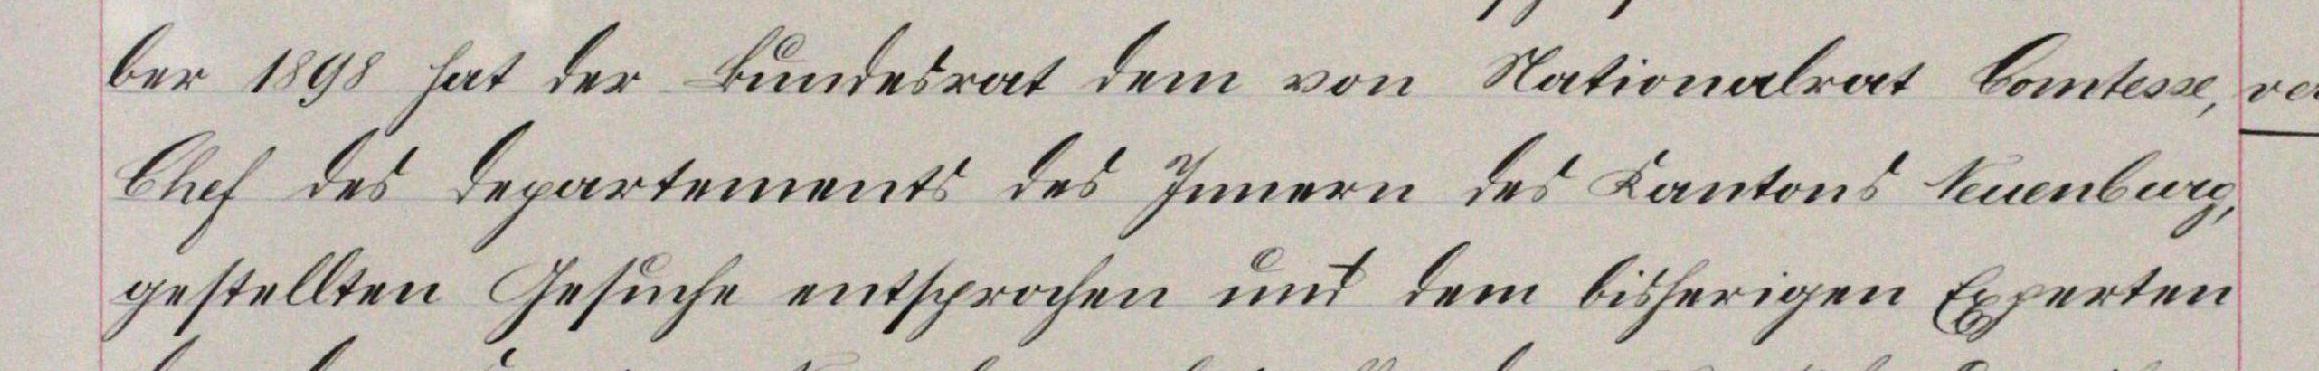 ber 1898 hat der Bundesrat dem von Nationalrat Comtesse,
Chef des Departements des Innern des Kantons Neuenburg,
gestellten Gesuche entsprochen und dem bisherigen Experten